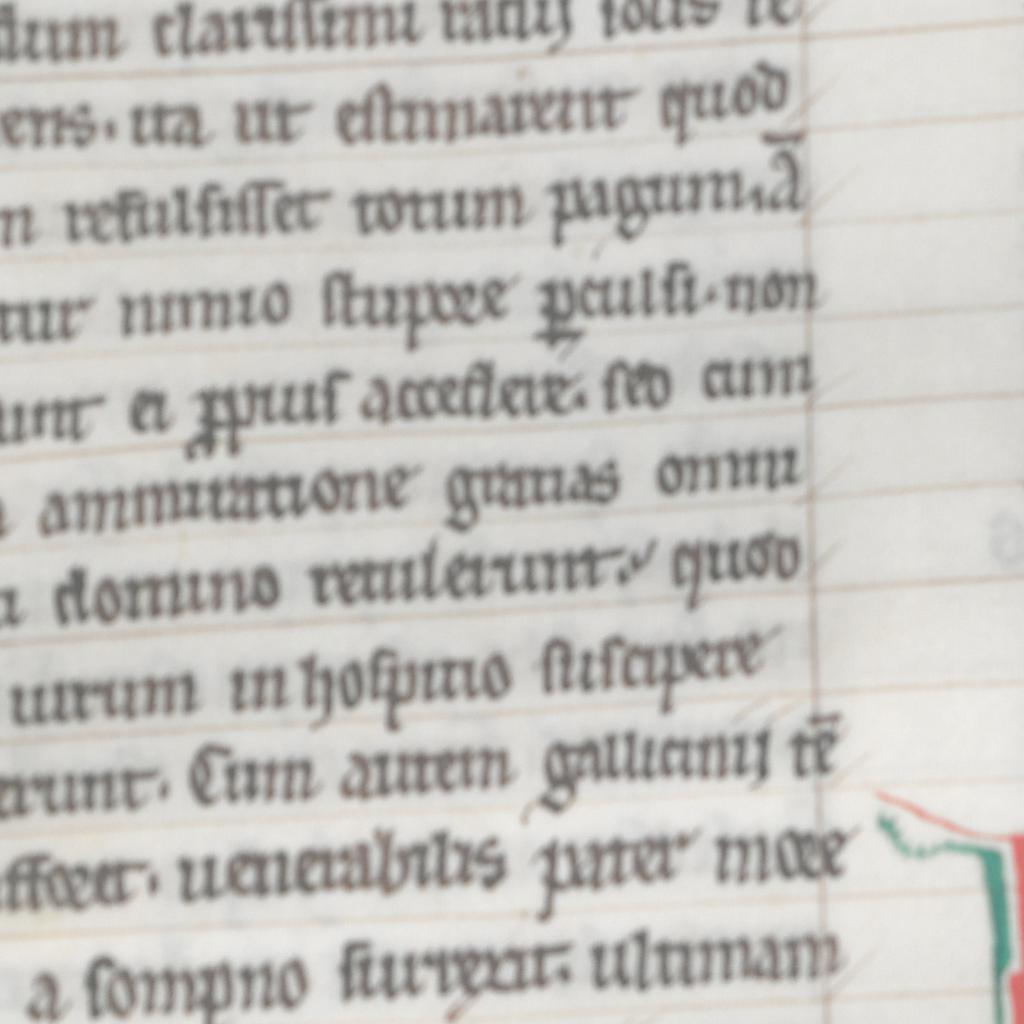 clarissimi radij solis re
ens. ita ut estimarent quod
refulsisset totum pagum. a᷄
tur nimio stupore ꝑculsi. non
unt ei ꝓpius accedere. sed cum
ammiratione gratias omni
domino retulerunt. quod
uirum in hospitio suscipere
erunt. Cum autem gallicinij te᷄
afforet. uenerabilis pater more
a sompno surrexit. ultimam